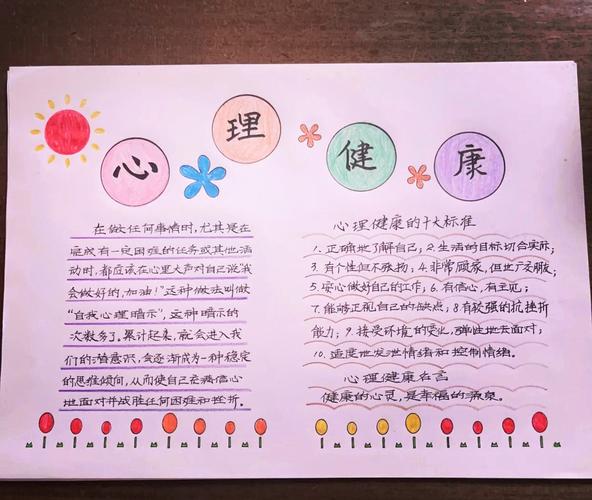 心理健康
在做任何事情时,尤其是在
完成有一定困难的任务或其他活
动时,都应该在心里大声对自己说"我
会做好的,加油!"这种做法叫做
"自我心理暗示",这种暗示的
次数多了。累计起来,就会进入我
们的潜意识,会逐渐成为一种稳定
的思维倾向,从而使自己充满信心
地面对并战胜任何困难和挫折。
心理健康的十大标准
1.正确地了解自己;2.生活的目标切合实际;
3.有个性但不;4.非常顾家,但也广交朋友;
5.安心做好自己的工作;6.有信心,有主见;
7.能够正视自己的缺点;8.有较强的抗挫折
能力;9.接受环境的变化,弹性地去面对;
10.适度地发泄情绪和控制情绪。
心理健康名言
健康的心灵,是幸福的源泉。